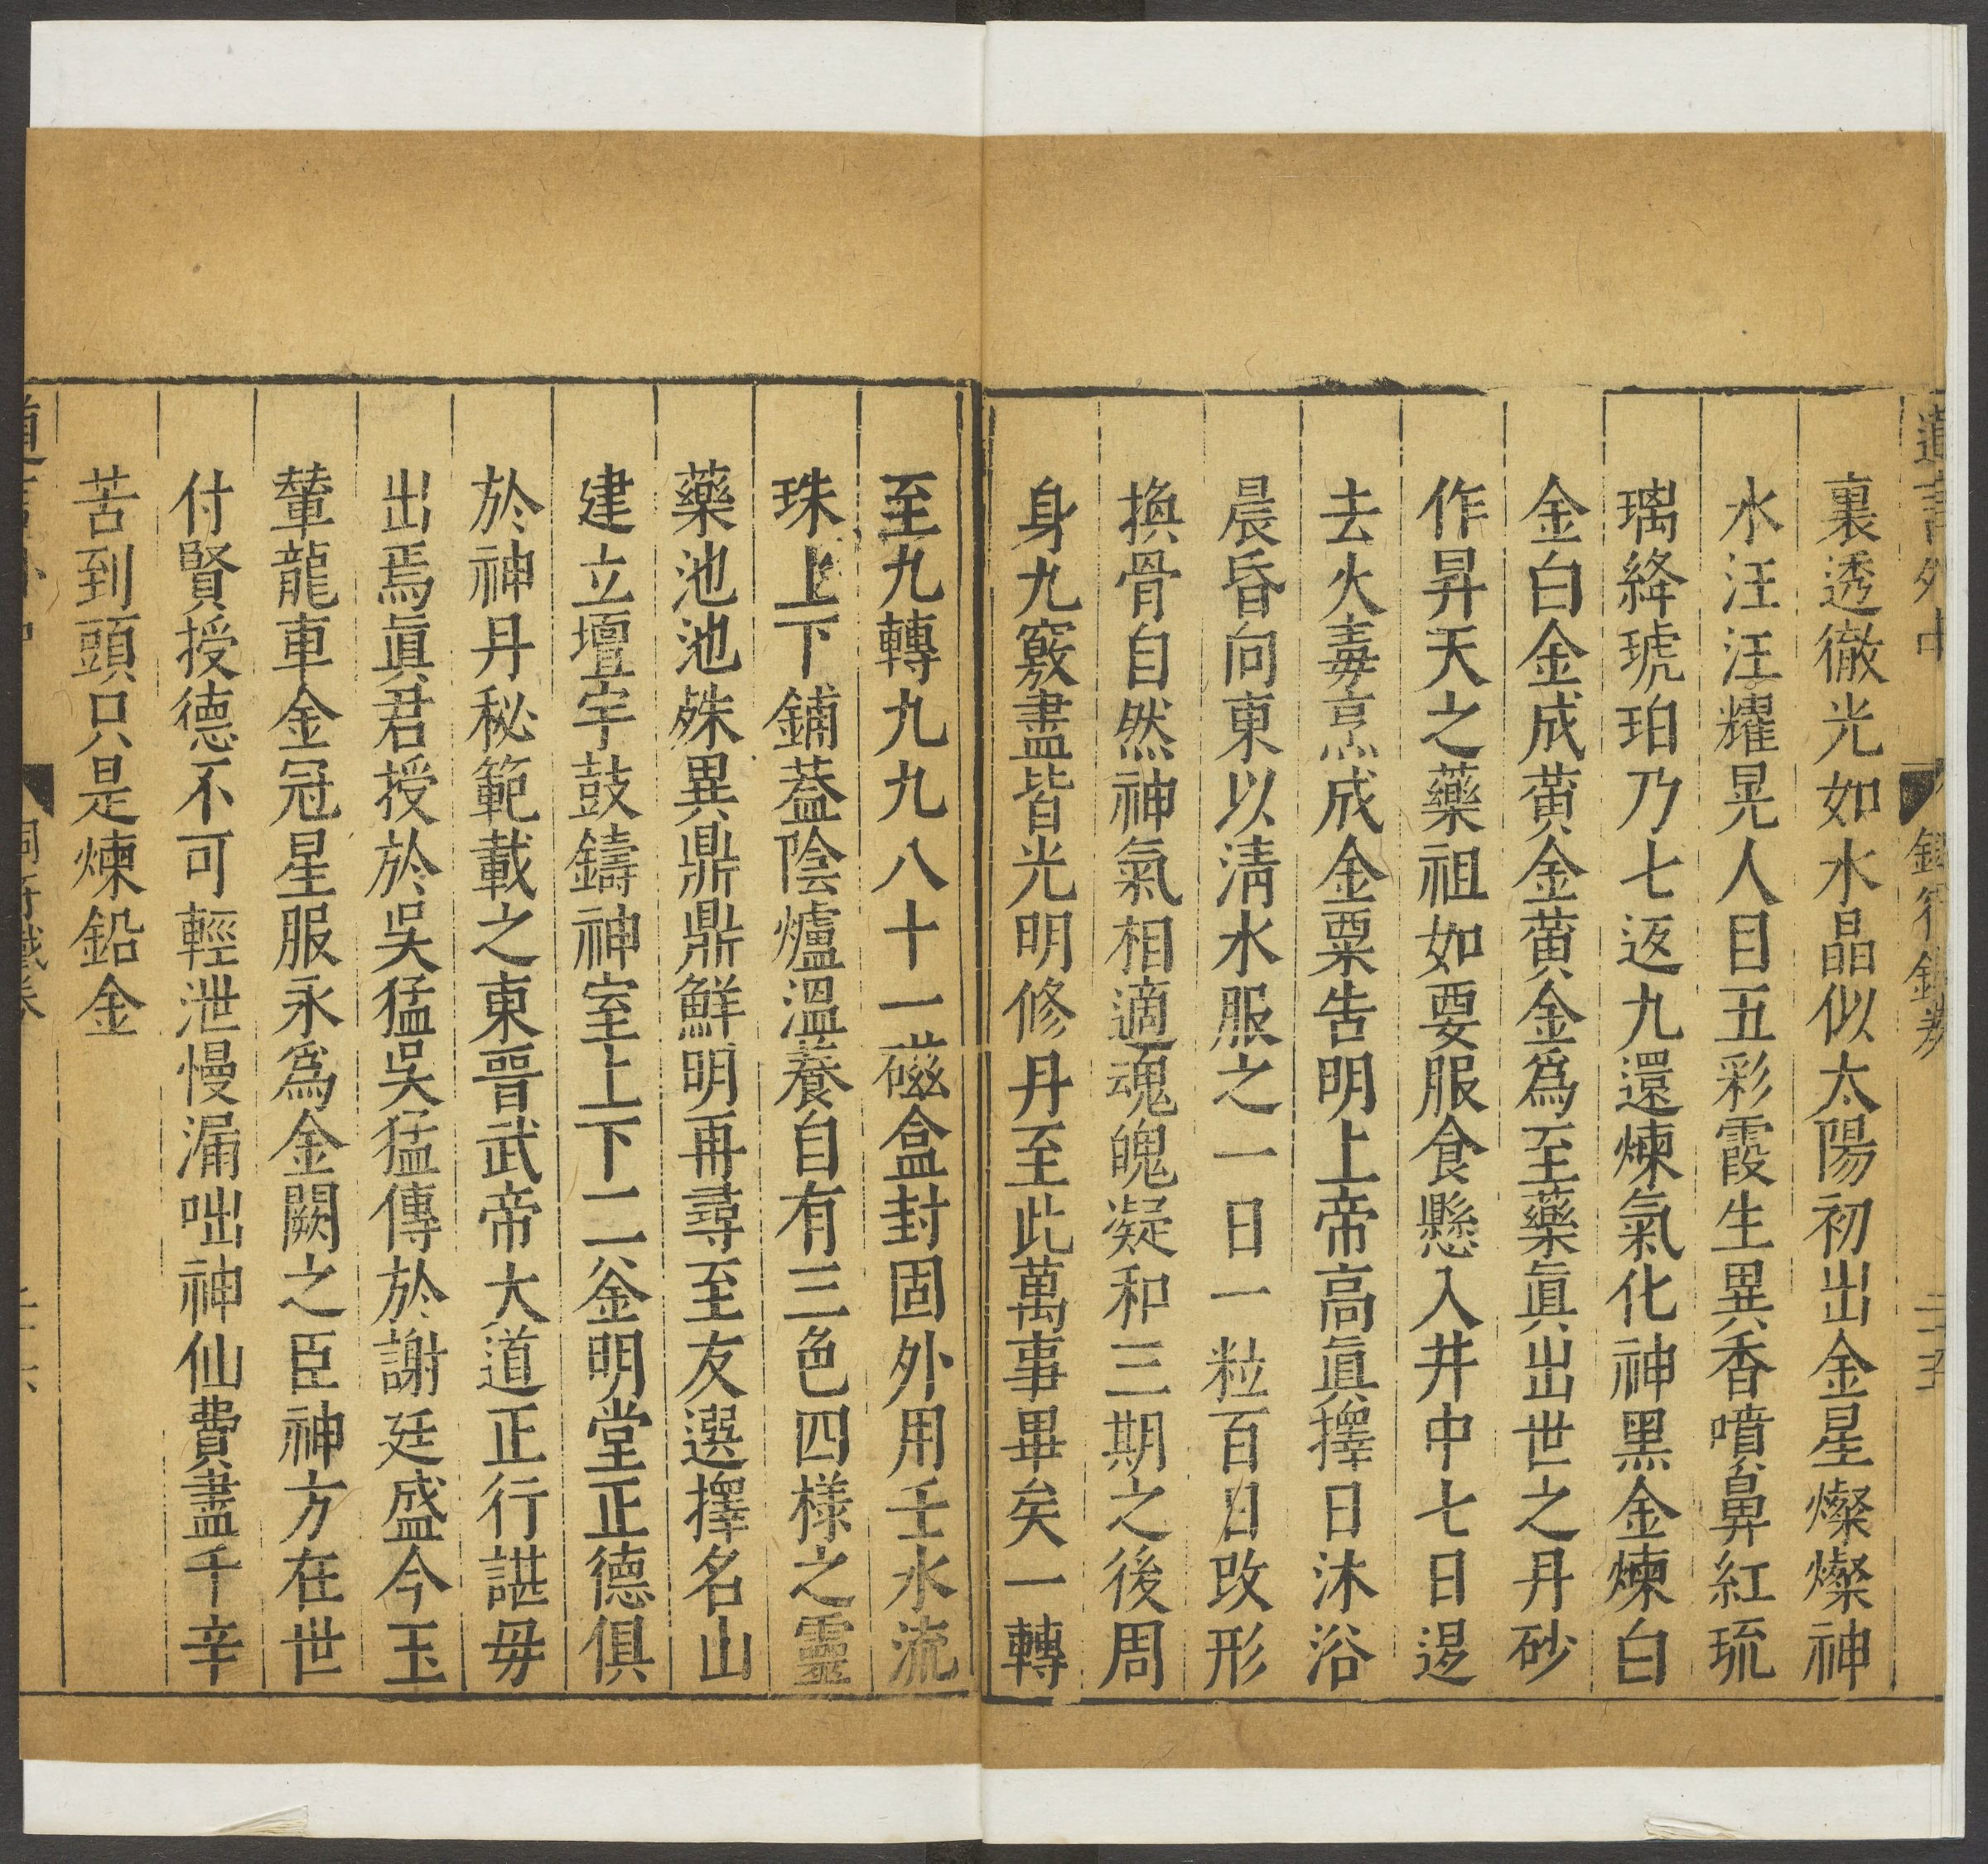 裏透徹光如水晶似太陽初出金星燦燦神
水汪汪耀晃人目五彩霞生異香噴鼻紅琉
璃絳琥珀乃七返九還煉氣化神黑金煉白
金白金成黃金黃金爲至藥眞出世之丹砂
作昇天之藥祖如要服食懸入井中七日逷
去火毒烹成金粟告明上帝高眞擇日沐浴
晨昏向東以清水服之一日一粒百日改形
換骨自然神氣相適魂魄凝和三期之後周
身九竅盡皆光明修丹至此萬事畢矣一轉
至九轉九九八十一磁盒封固外用壬水流
珠上下鋪葢陰爐溫養自有三色四樣之靈
藥池池殊異鼎鼎鮮明再尋至友選擇名山
建立壇宇鼓鑄神室上下二釜明堂正德俱
於神丹秘範載之東晉武帝大道正行諶毋
出焉眞君授於吳猛吳猛傳於謝廷盛今玉
輦龍車金冠星服永爲金闕之臣神方在世
付賢授德不可輕泄慢漏咄神仙費盡千辛
苦到頭只是煉鉛金